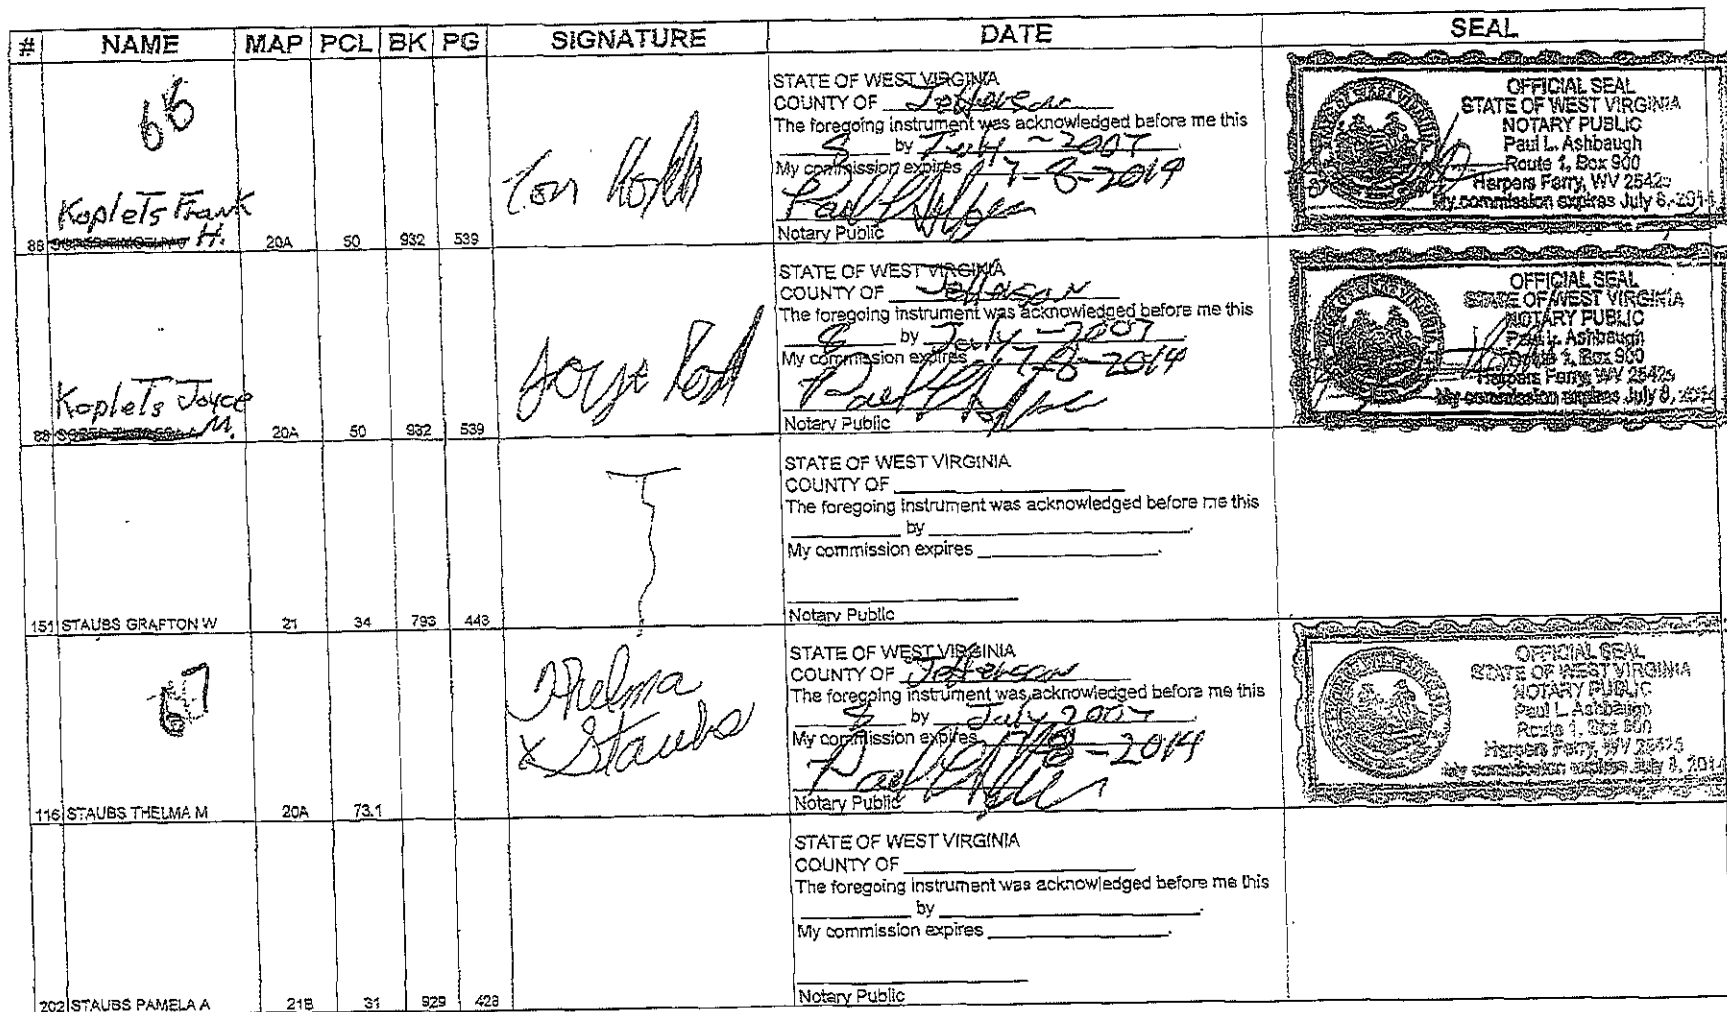 # NAME MAP PCL BK PG SIGNATURE DATE SEAL
66
Koplets Frank
H.
88 20A 50 932 539
STATE OF WEST VIRGINIA
COUNTY OF Jefferson
The foregoing instrument was acknowledged before me this
8 by July - 2007
My commission expires 7-8-2014
Notary Public
OFFICIAL SEAL
STATE OF WEST VIRGINIA
NOTARY PUBLIC
Paul L. Ashbaugh
Route 1, Box 900
Harpers Ferry, WV 25425
My commission expires July 8, 2014
Koplets Joyce
M.
88 20A 50 932 539
Joyce
STATE OF WEST VIRGINIA
COUNTY OF Jefferson
The foregoing instrument was acknowledged before me this
8 by July - 2007
My commission expires 7-8-2014
Notary Public
OFFICIAL SEAL
STATE OF WEST VIRGINIA
NOTARY PUBLIC
Paul L. Ashbaugh
Route 1, Box 900
Harpers Ferry, WV 25425
My commission expires July 8, 2014
151 STAUBS GRAFTON W 21 34 793 443
STATE OF WEST VIRGINIA
COUNTY OF
The foregoing instrument was acknowledged before me this
by
My commission expires
Notary Public
67
116 STAUBS THELMA M 20A 73.1
Thelma
x Staubs
STATE OF WEST VIRGINIA
COUNTY OF Jefferson
The foregoing instrument was acknowledged before me this
8 by July 2007
My commission expires 7-8-2014
Notary Public
OFFICIAL SEAL
STATE OF WEST VIRGINIA
NOTARY PUBLIC
Paul L. Ashbaugh
Route 1, Box 900
Harpers Ferry, WV 25425
My commission expires July 8, 2014
202 STAUBS PAMELA A 21B 31 929 428
STATE OF WEST VIRGINIA
COUNTY OF
The foregoing instrument was acknowledged before me this
by
My commission expires
Notary Public